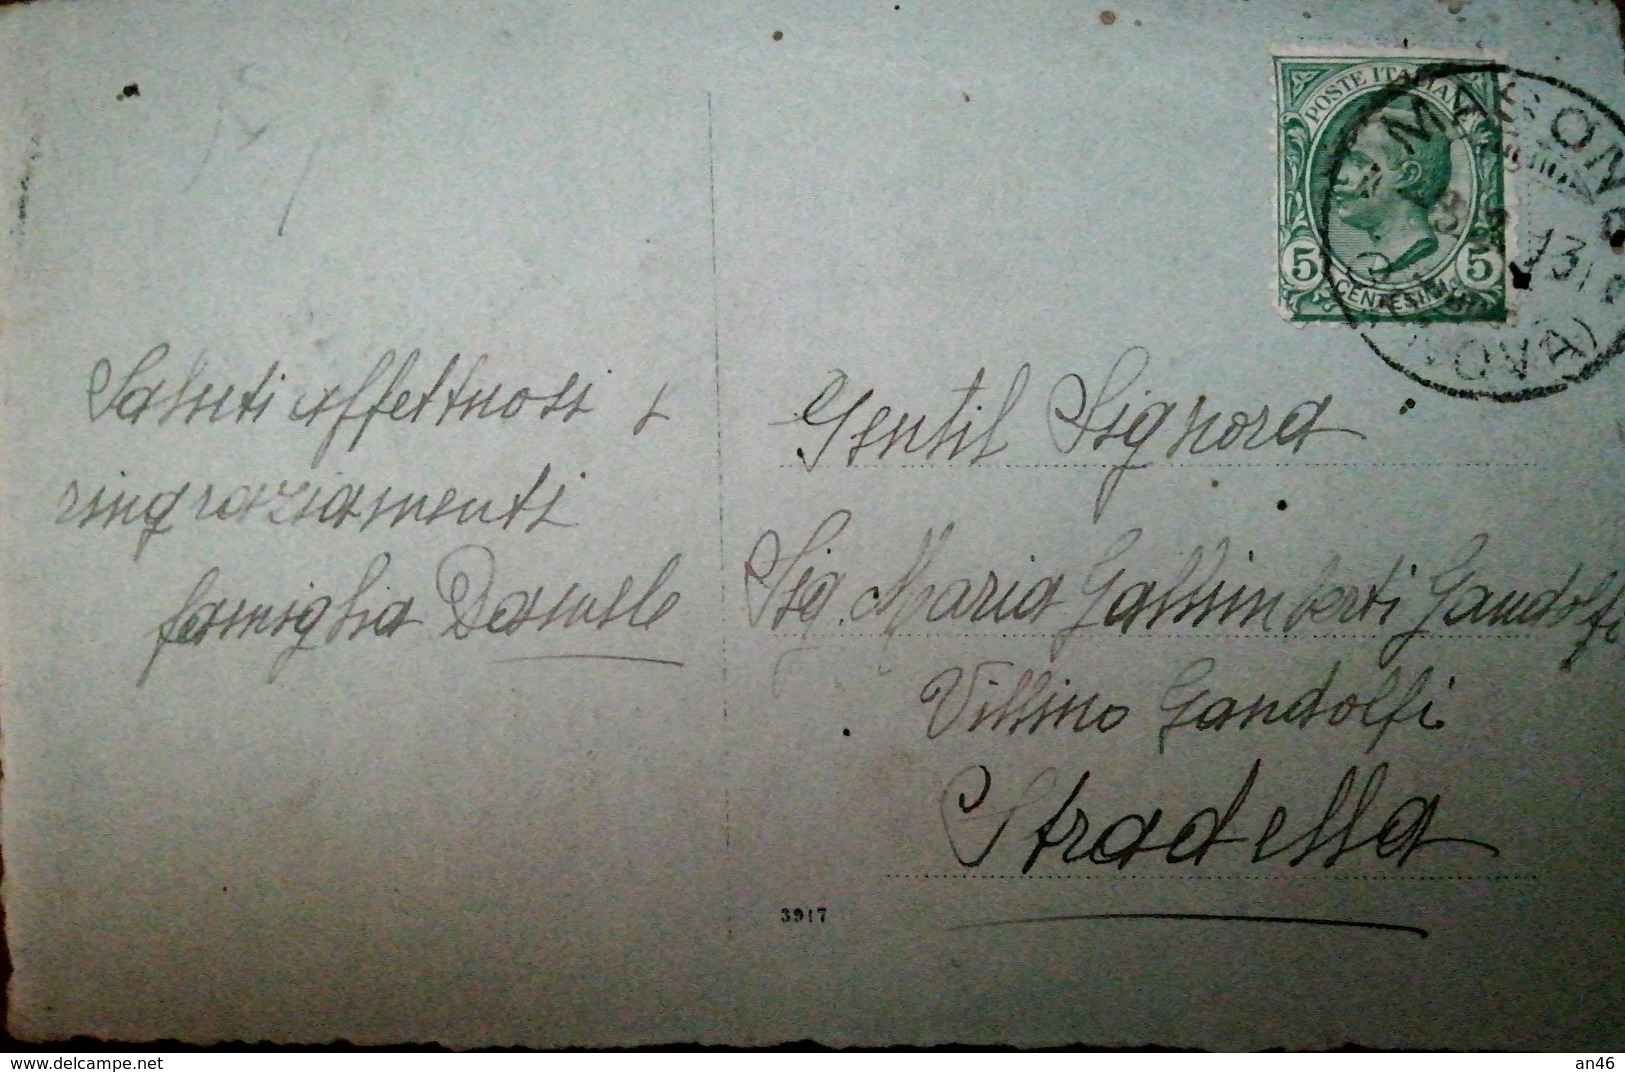 POSTE ITALIANE
5 5
CENTESIMI
MASONE
13
NOVA)
Saluti affettuosi e
ringraziamenti
famiglia
Gentil Signora
Sig. Maria Gallimberti Gandolfi
Villino Gandolfi
Stradella
3917
delcampe.net
an46